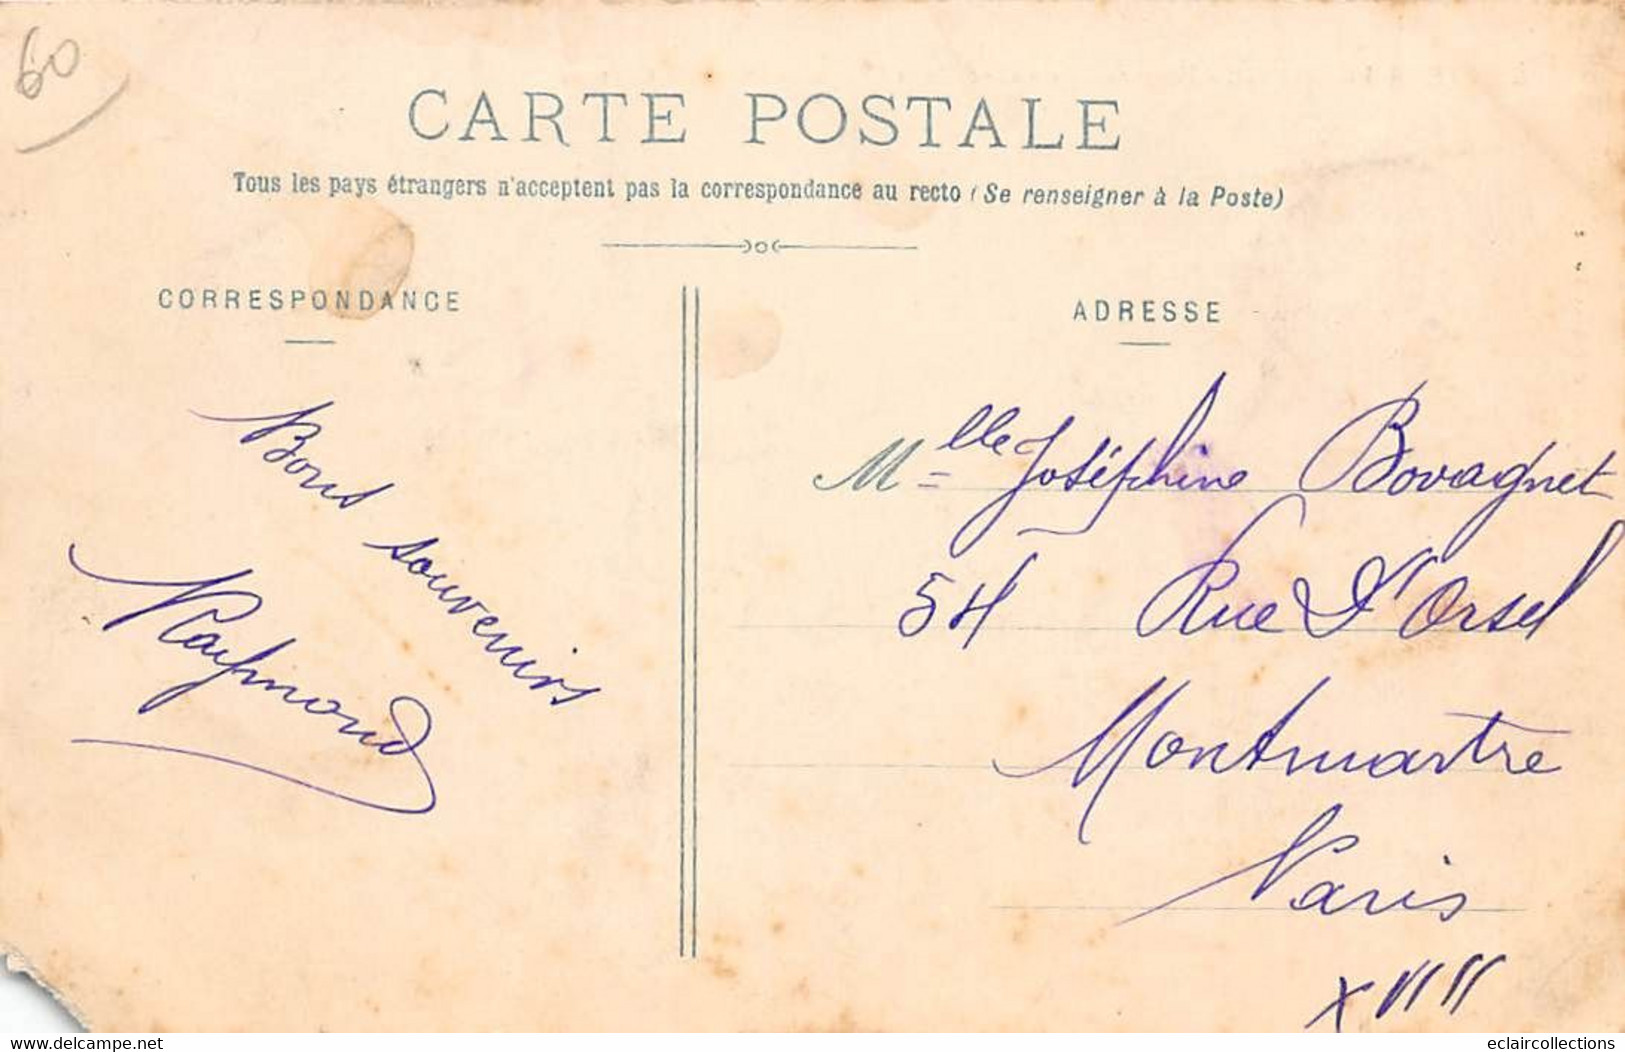 60
CARTE POSTALE
Tous les pays étrangers n'acceptent pas la correspondance au recto (Se renseigner à la Poste)
CORRESPONDANCE
Bons souvenirs
Raymond
ADRESSE
Mlle Joséphine Bovagnet
54 Rue d'Orsel
Montmartre
Paris
XVIII
www.delcampe.net
eclaircollections